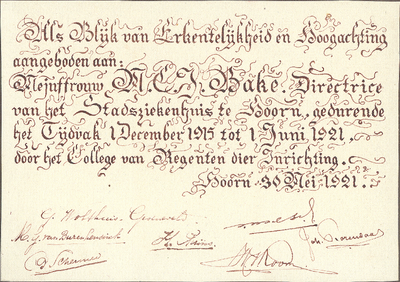 Als Blijk van Erkentelijkheid en Hoogachting
aangeboden aan:
Mejuffrouw M.C.J. Bake, Directrice
van het Stadsziekenhuis te Hoorn, gedurende
het Tijdvak 1 December 1915 tot 1 Juni 1921,
door het College van Regenten dier Inrichting.
Hoorn 30 Mei 1921.